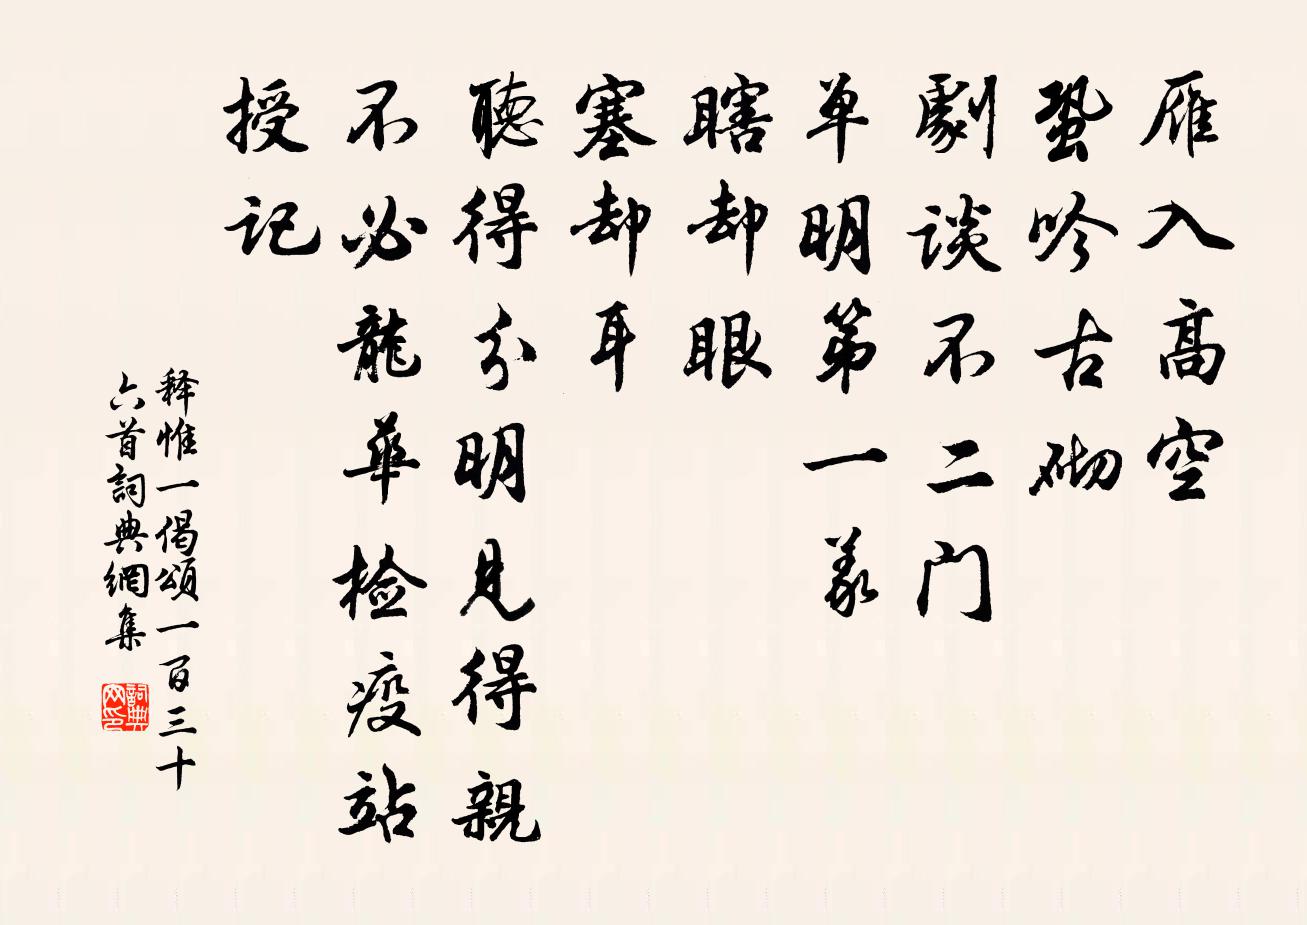 雁入高空
蛩吟古砌
劇談不二门
单明第一義
瞎却眼
塞却耳
聽得分明見得親
不必龍華检疫站
授记
释惟一偈頌一百三十
六首詞典網集
詞典
网印